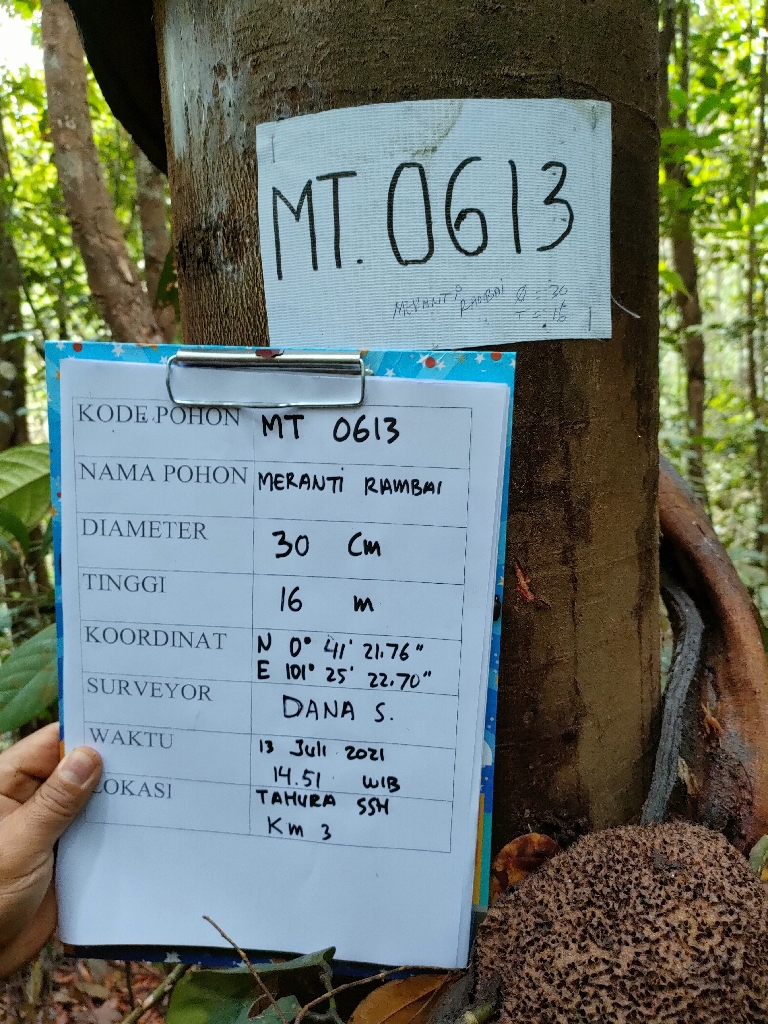 MT. 0613
MERANTI RAMBAI Ø = 30
T = 16
KODE POHON MT 0613
NAMA POHON MERANTI RAMBAI
DIAMETER 30 Cm
TINGGI 16 m
KOORDINAT N 0° 41' 21.76"
E 101° 25' 22.70"
SURVEYOR DANA S.
WAKTU 13 Juli 2021
14.51 WIB
LOKASI TAHURA SSH
Km 3